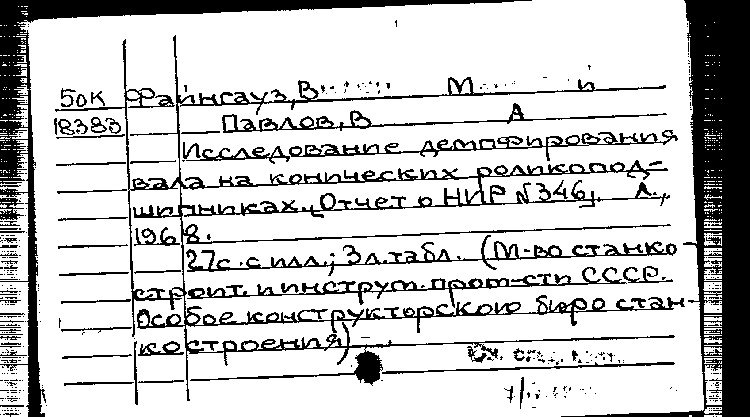 Файнгауз, В М й
50К
18383
Павлов, В А
Исследование демпфирования
вала на конических роликопод-
шипниках. [Отчет о НИР №346]. Л.,
1968.
27с. с илл.; 3л. табл. (М-во станко-
строит. и инструм. пром-сти СССР.
Особое конструкторского бюро стан-
костроения)
См. след. карт.